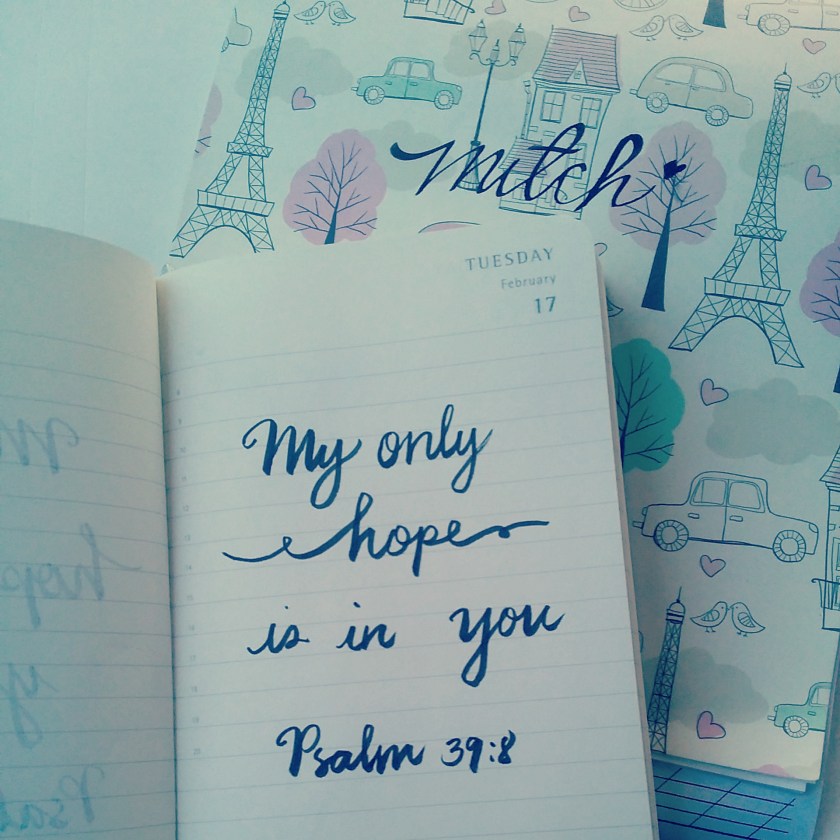 mitch
TUESDAY
February
17
My only
hope
is in you
Psalm 39:8